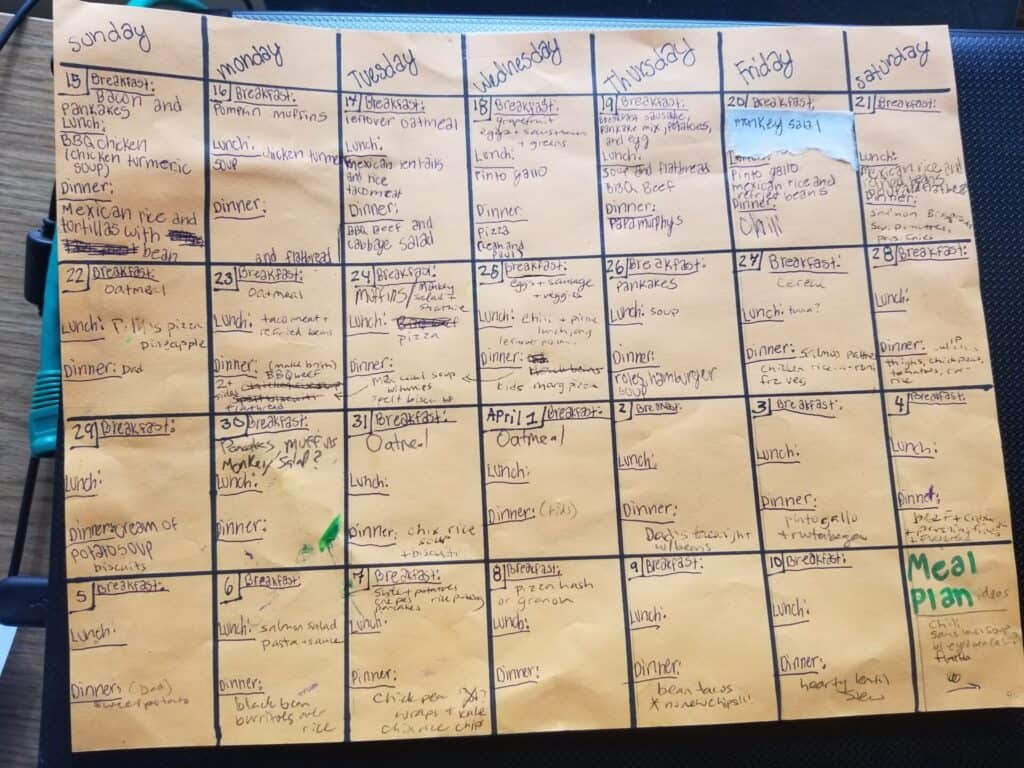 Sunday
Monday
Tuesday
Wednesday
Thursday
Friday
Saturday
15 Breakfast:
Bacon and
pankakes
Lunch:
BBQ chicken
(chicken turmeric
soup)
Dinner:
Mexican rice and
tortillas with
bean
16 Breakfast:
Pumpkin muffins
Lunch: chicken turmeric
soup
Dinner:
and flatbread
17 Breakfast:
leftover oatmeal
Lunch:
mexican lentails
and rice
taco meat
Dinner:
BBQ Beef and
cabbage salad
18 Breakfast:
grapefruit
eggs + sauerkraut
+ greens
Lunch:
Pinto gallo
Dinner:
pizza
19 Breakfast:
Breakfast sausage,
pankake mix, potatoes,
and egg
Lunch:
Soup and flatbread
BBQ Beef
Dinner:
Papa murphys
20 Breakfast:
monkey salad
Pinto gallo
mexican rice and
refried beans
Dinner:
Chili
21 Breakfast:
Lunch:
Mexican rice and
Dinner:
Salmon
22 Breakfast:
oatmeal
Lunch: pizza
pineapple
Dinner: Dad
23 Breakfast:
oatmeal
Lunch: taco meat +
refried beans
Dinner:
BBQ beef
2+
sides
flatbread
24 Breakfast:
Muffins/ Monkey
salad +
smoothie
Lunch:
pizza
Dinner:
soup
spelt
25 Breakfast:
eggs + sausage
+ veggies
Lunch: chili +
Dinner:
kids marg pizza
26 Breakfast:
Pankakes
Lunch: soup
Dinner:
roles, hamburger
soup
27 Breakfast:
Cereal
Lunch: tuna?
Dinner: Salmon patties
chicken rice
frz veg
28 Breakfast:
Lunch:
Dinner:
thighs, chick peas,
tomatoes,
rice
29 Breakfast:
Lunch:
Dinner: cream of
potato soup
biscuits
30 Breakfast:
Pancakes muffins
Monkey Salad?
Lunch:
Dinner:
31 Breakfast:
Oatmeal
Lunch:
Dinner: chix rice
soup
+ biscuits
April 1 Breakfast:
Oatmeal
Lunch:
Dinner: (kids)
2 Breakfast:
Lunch:
Dinner:
Dad's taco night
w/ beans
3 Breakfast:
Lunch:
Dinner:
pinto gallo
+ rutabagas
4 Breakfast:
Lunch:
Dinner:
beef +
5 Breakfast:
Lunch:
Dinner: (Dad)
sweet potato
6 Breakfast:
Lunch: salmon salad
pasta + sauce
Dinner:
black bean
burritos over
rice
7 Breakfast:
Sweet potatoes
crepes rice pudding
pancakes
Lunch:
Dinner:
Chick pea
wraps + kale
chix rice chips
8 Breakfast:
pizza hash
or granola
Lunch:
Dinner:
9 Breakfast:
Lunch:
Dinner:
bean tacos
10 Breakfast:
Lunch:
Dinner:
hearty lentil
stew
Meal
Plan ideas
Chili